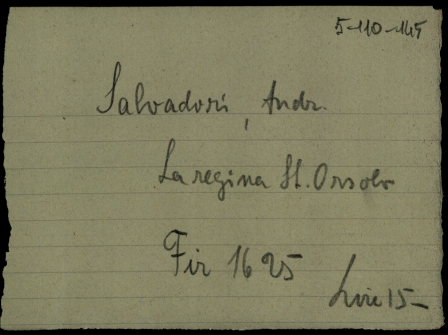 5-110-145
Salvadori, Andr.
La regina St. Orsola
Fir 1625
Lire 15-